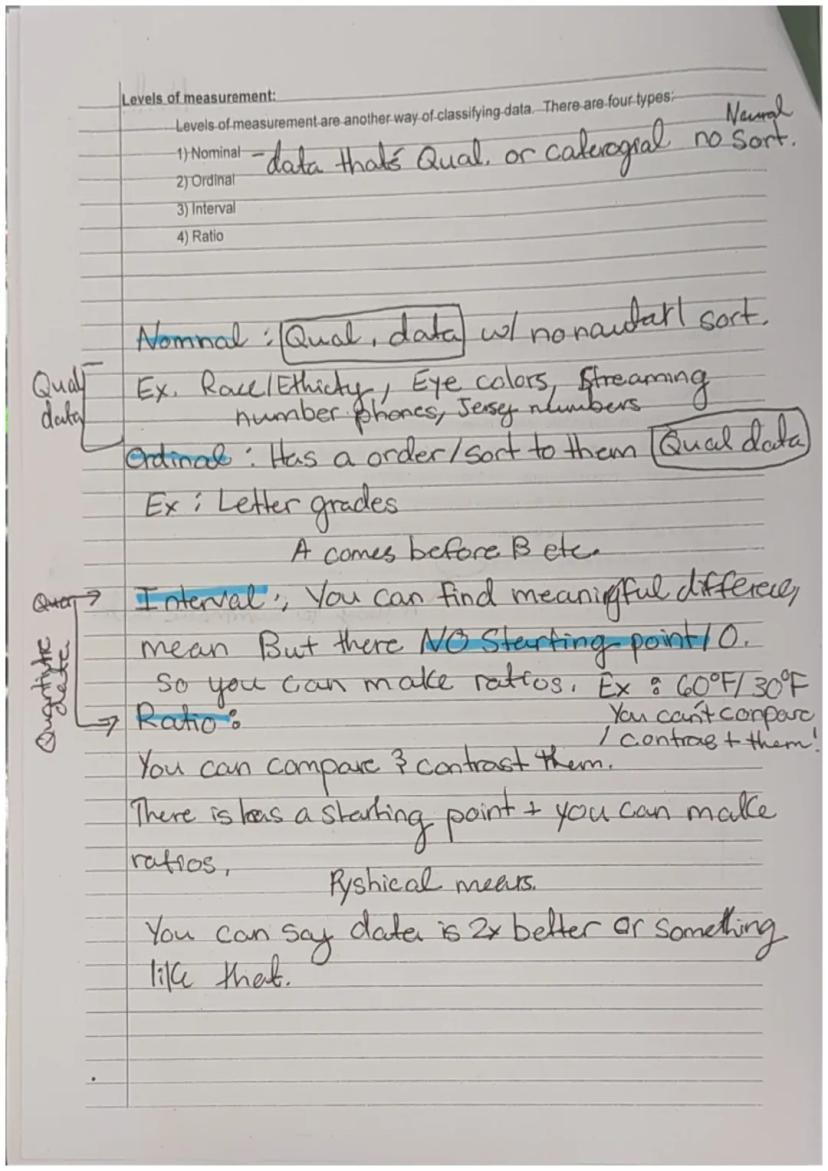 Levels of measurement:
Levels of measurement are another way of classifying data. There are four types:
1) Nominal - data thats Qual. or caterogial no Neural sort.
2) Ordinal
3) Interval
4) Ratio
Nomnal : Qual, data w/ no naudarl sort.
Qual data
Ex. Race/Ethicty, Eye colors, Streaming
number phones, Jersey numbers
Ordinal : Has a order/sort to them Qual data
Ex : Letter grades
A comes before B etc.
Quan
Interval :, You can find meaningful differece,
mean But there NO Starting point / 0.
So you can make ratios. Ex : 60°F/30°F
Ratio :
You can't conparc
/ contrast them!
You can compare & contrast them.
There is has a starting point + you can make
ratios,
Pyshical mears.
You can say data is 2x better or something
like that.